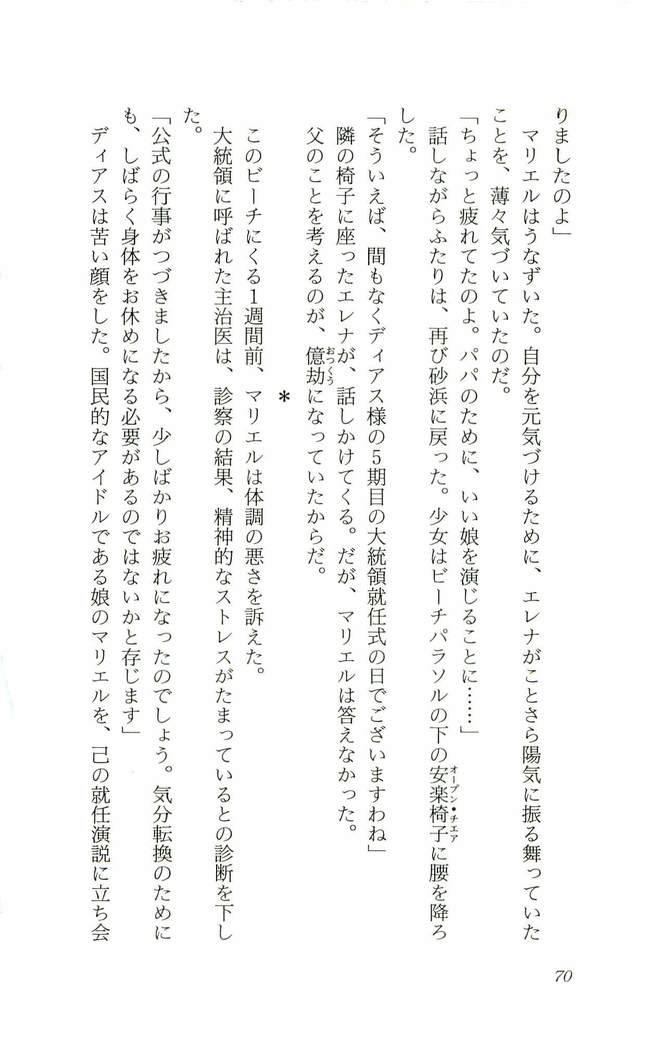 りましたのよ」
　マリエルはうなずいた。自分を元気づけるために、エレナがことさら陽気に振る舞っていた
ことを、薄々気づいていたのだ。
「ちょっと疲れてたのよ。パパのために、いい娘を演じることに……」
　話しながらふたりは、再び砂浜に戻った。少女はビーチパラソルの下の安楽椅子に腰を降ろ
オープン・チエア
した。
「そういえば、間もなくディアス様の5期目の大統領就任式の日でございますわね」
　隣の椅子に座ったエレナが、話しかけてくる。だが、マリエルは答えなかった。
　父のことを考えるのが、億劫になっていたからだ。
おっくう
＊
　このビーチにくる1週間前、マリエルは体調の悪さを訴えた。
　大統領に呼ばれた主治医は、診察の結果、精神的なストレスがたまっているとの診断を下し
た。
「公式の行事がつづきましたから、少しばかりお疲れになったのでしょう。気分転換のために
も、しばらく身体をお休めになる必要があるのではないかと存じます」
　ディアスは苦い顔をした。国民的なアイドルである娘のマリエルを、己の就任演説に立ち会
70